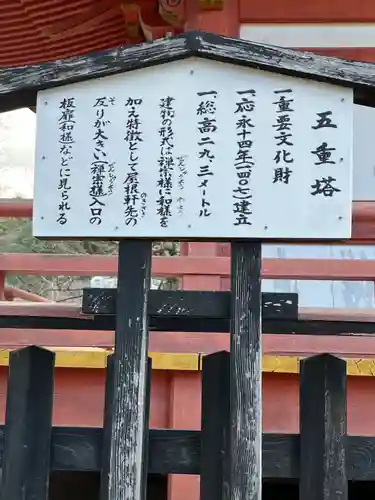 五重塔
一重要文化財
一応永十四年(一四〇七)建立
一総高二九.三メートル
建物の形式は禅宗様に和様を
加え特徴として屋根軒先の
反りが大きい禅宗様入口の
板扉和様などに見られる